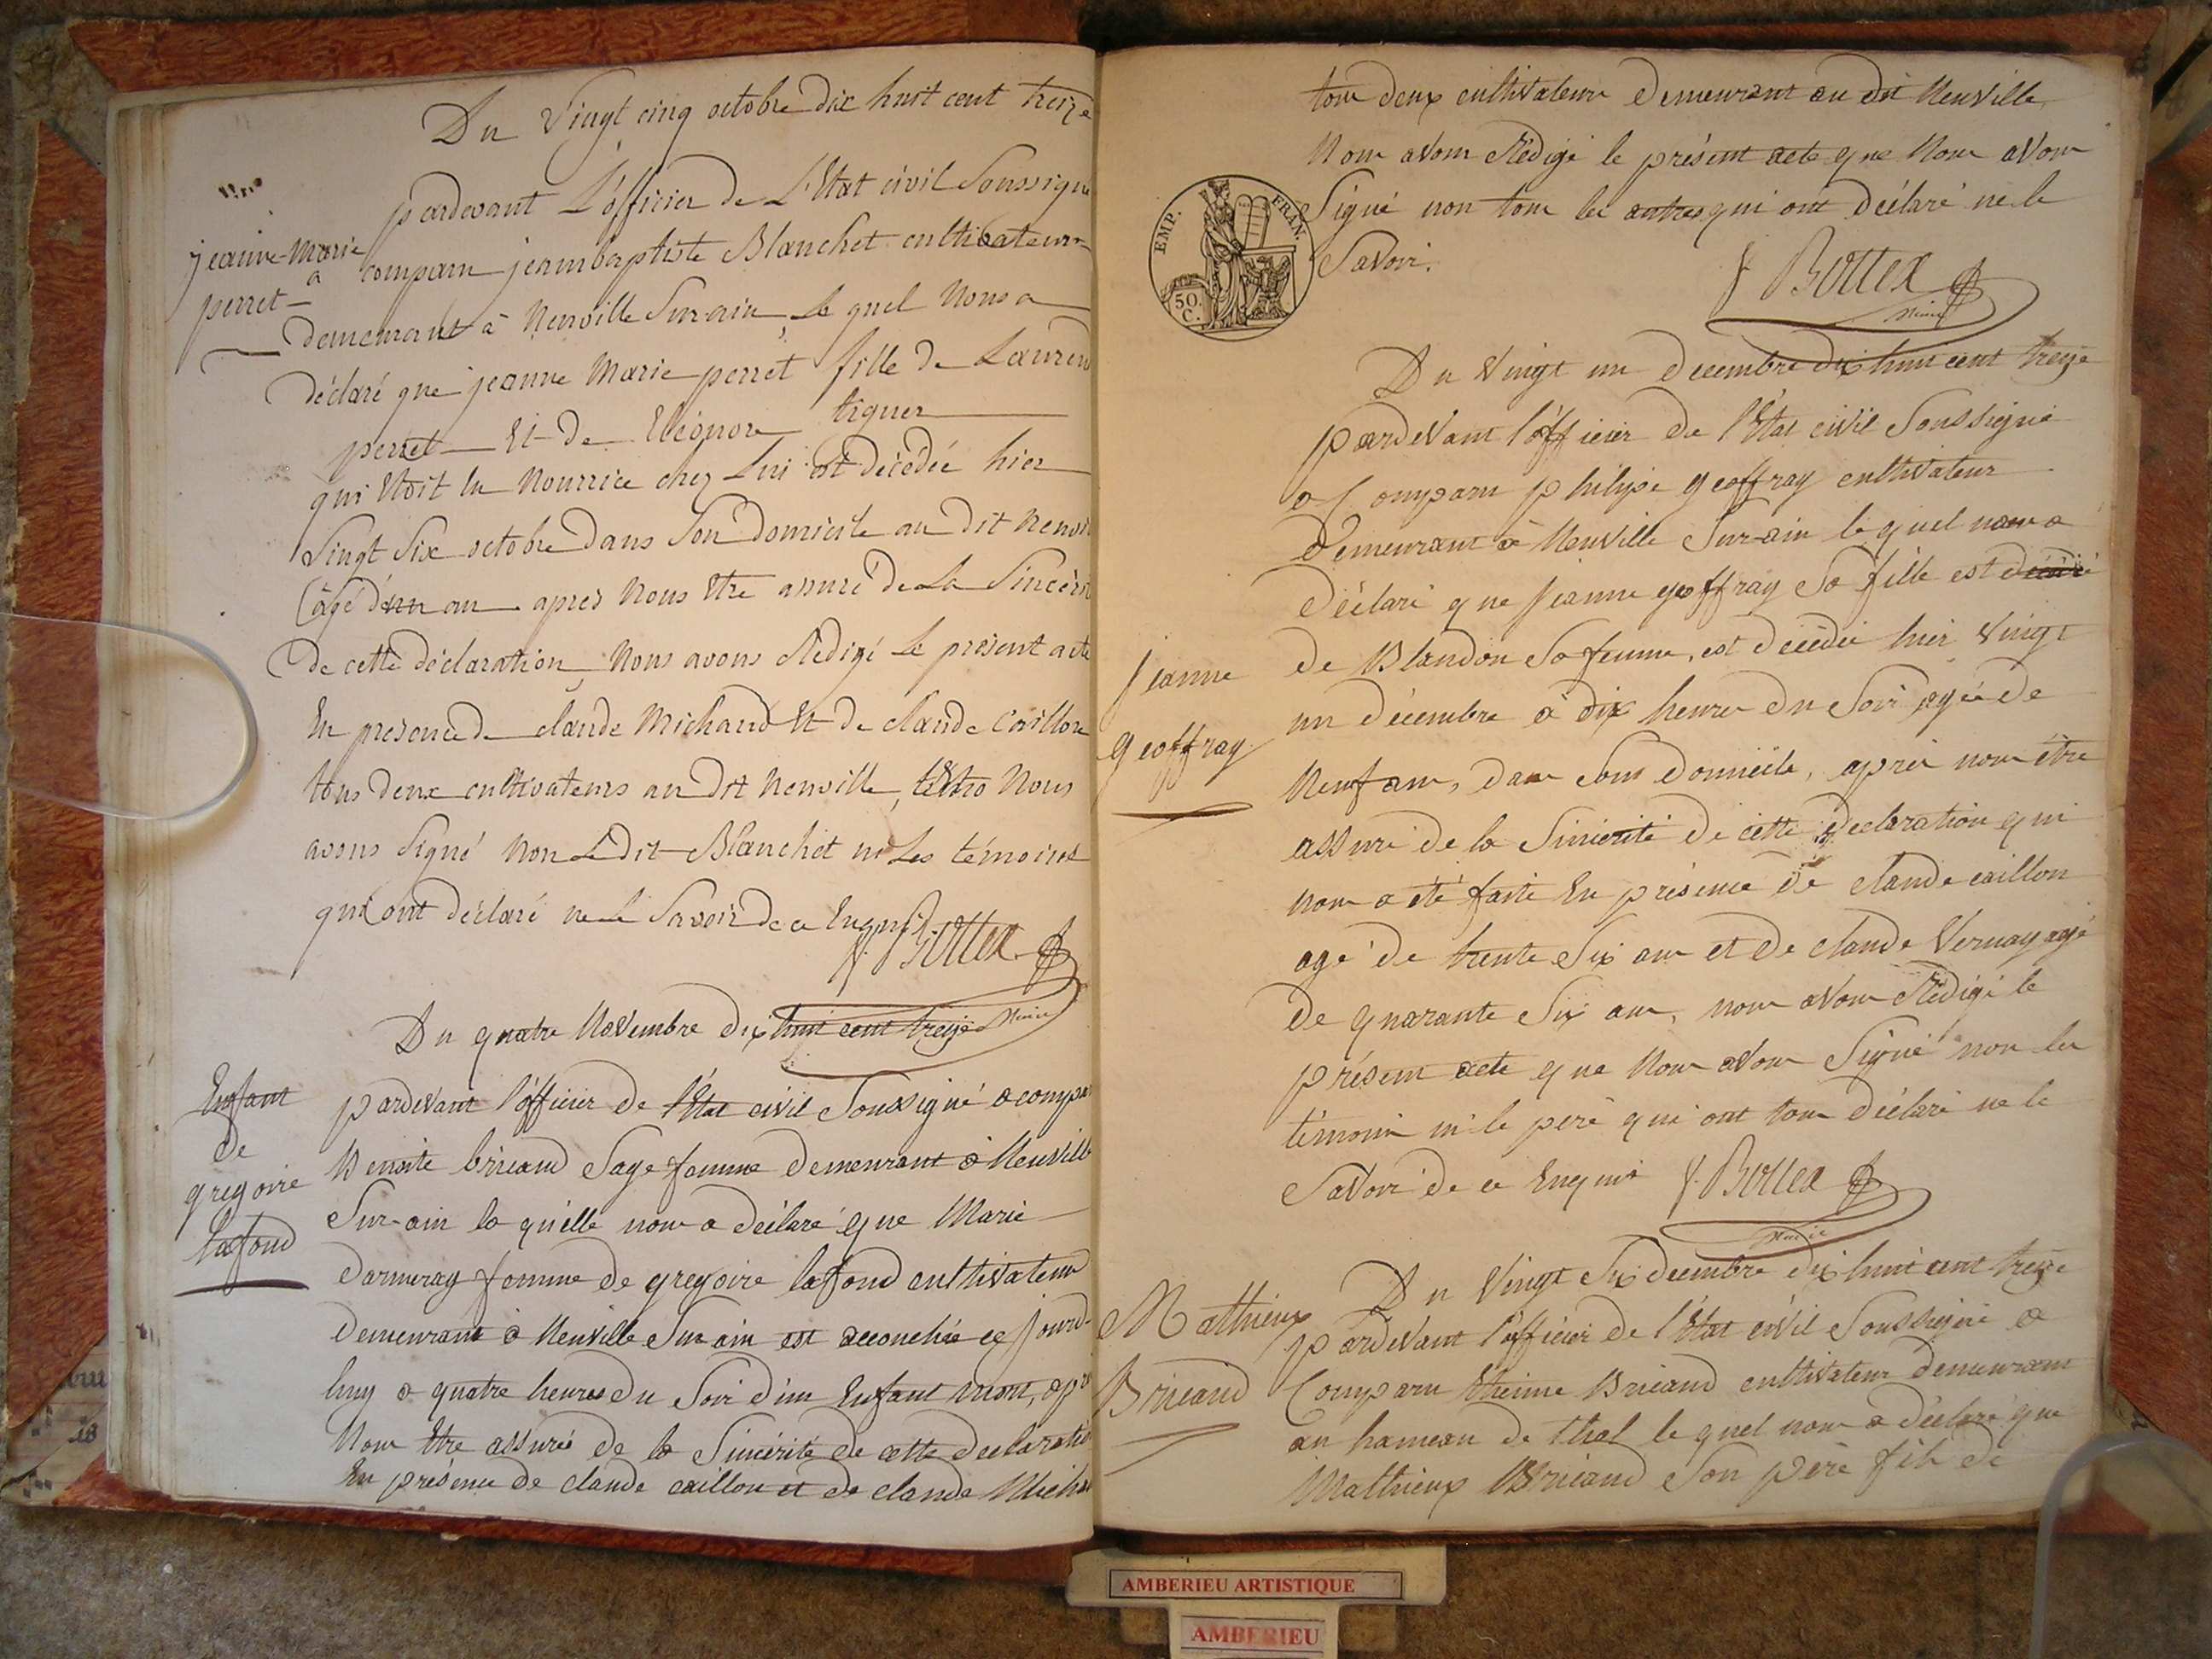 Du Vingt cinq octobre dix huit cent treize
pardevant L'officier de L'Etat civil Soussigné
jeanne-Marie
perret
a comparu jeanbaptiste Blanchet cultivateur
demeurant à Neuville Sur ain, Le quel Nous a
déclaré que jeanne Marie perret fille de Laurend
perret Et de Eléonore tiguer
qui Etoit En Nourrice chez Lui est décédée hier
Vingt Six octobre dans Son Domicile au dit Neuvil
âgé d'un an apres Nous Etre assuré de La Sincérit
de cette déclaration, Nous avons Rédigé Le présent acte
En presence de claude Michaud Et de claude Caillon
tous deux cultivateurs au dit Neuville, Nous
avons Signé Non Le dit Blanchet ni Les témoins
qui ont déclaré ne Le Savoir de ce Enquis
f. Bottex
Maire
Du quatre Novembre dix huit cent treize
Enfant
de
gregoire
lafond
pardevant l'officier de l'Etat civil Soussigné a compa
Benoite brieand Sage femme demeurant à Neuville
Sur-ain la quelle nous a déclaré que Marie
darmeray femme de gregoire lafond cultivateur
demeurant à Neuville Sur ain est accouchée ce jourd
huy a quatre heures du Soir d'un Enfant mort, apr
Nous Etre assurés de la Sincérité de cette declaratio
En présence de claude caillon et de claude Michau
tous deux cultivateurs demeurant au dit Neuville
Nous avons Rédigé le présent acte que Nous avons
Signé non tous les autres qui ont déclaré ne le
Savoir.
EMP. FRAN.
50.
C.
f Bottex
Maire
Du Vingt un decembre dix huit cent treize
pardevant l'officier de l'Etat civil Soussigné
a Comparu philipe geoffray cultivateur
demeurant à Neuville Sur-ain le quel nous a
déclaré que jeanne geoffray Sa fille est
Jeanne
geoffray
de Blandon Sa femme, est décédée hier Vingt
un décembre à dix heures du Soir agée de
Neuf ans, dans Son domicile, après nous être
assuré de la Sincérité de cette declaration qui
nous a été faite En présence de claude caillon
agé de trente Six ans et de claude Vernay agé
de quarante Six ans, nous avons Rédigé le
présent acte que Nous avons Signé non les
témoins ni le père qui ont tous déclaré ne le
Savoir de ce Enquis f. Bottex
Maire
Du Vingt Six decembre dix huit cent treize
Mathieux
Brieand
pardevant l'officier de l'Etat civil Soussigné a
Comparu Etienne Brieand cultivateur demeurant
au hameau de thol le quel nous a déclaré que
Mathieux Brieand Son père fils de
AMBERIEU ARTISTIQUE
AMBERIEU